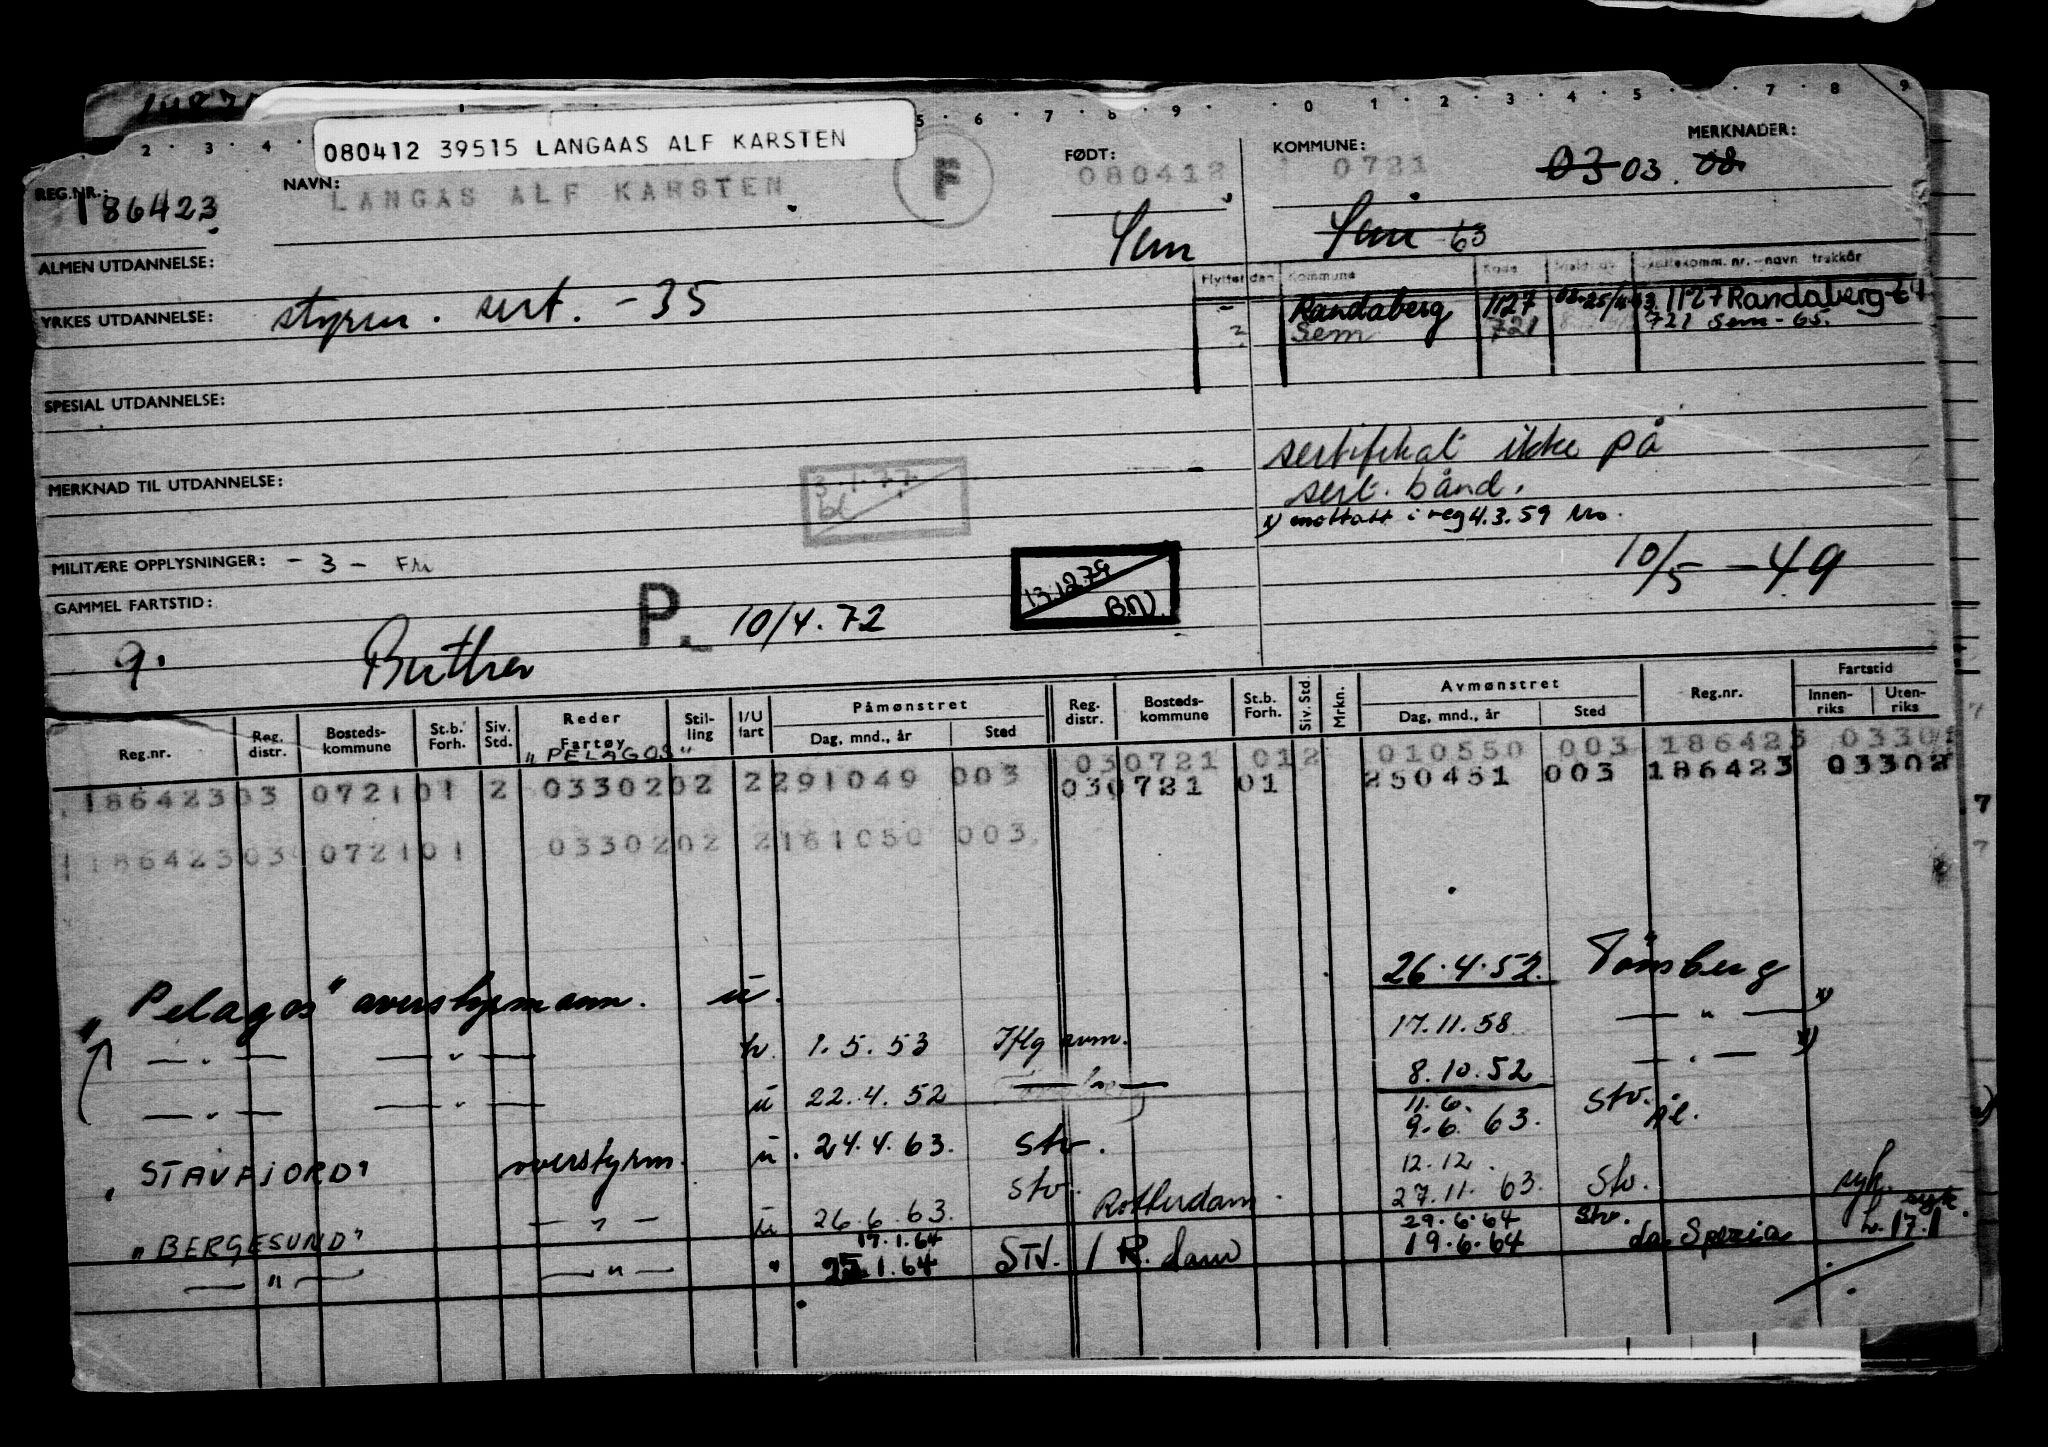 2 · 3 · 4 · 5 · 6 · 7 · 8 · 9 · 0 · 1 · 2 · 3 · 4 · 5 · 7 · 8 · 9
080412 39515 LANGAAS ALF KARSTEN
REG.NR.: 186423
NAVN: LANGAS ALF KARSTEN
F
FØDT: 080412
Sem
KOMMUNE: 0721
MERKNADER:
03 03. 08.
Sem -63
ALMEN UTDANNELSE:
Flyttet den Kommune Kode trekkår
YRKES UTDANNELSE: styrm. sert. -35
- Randaberg 1127 1127 Randaberg-64
Sem 721 721 Sem-65.
SPESIAL UTDANNELSE:
sertifikat ikke på
sert. bånd.
x) mottatt i reg 4.3.59
MERKNAD TIL UTDANNELSE:
3.1.77
bl
MILITÆRE OPPLYSNINGER: - 3 - Fri
10/5 - 49
13.12.79
B.N.
GAMMEL FARTSTID:
9.
P. 10/4.72
Påmønstret Avmønstret Fartstid
Reg.nr. Reg. distr. Bosteds-kommune St.b. Forh. Siv. Std. Reder Fartøy Stil-ling I/U fart Dag, mnd., år Sted Reg. distr. Bosteds-kommune St.b. Forh. Siv. Std. Mrkn. Dag, mnd., år Sted Reg.nr. Innen-riks Uten-riks
"PELAGOS"
030721 012 010550 003 186423 03301
186423 03 0721 01 2 033020 02 2 291049 003 030721 01 250451 003 186423 03302
186423 03 0721 01 033020 02 2 161050 003
"Pelagos" overstyrmann. u. 26.4.52. Tönsberg
— " — — " — 1.5.53 17.11.58 — " — x)
— " — — " — u 22.4.52 — " — 8.10.52 — " — x)
11.6.
"STAVFJORD" overstyrm. u. 24.4.63. Stv. 9.6.63. Stv. Ål.
12.12.
"BERGESUND" — " — u 26.6.63. Stv. Rotterdam. 27.11.63. Stv. syk.
17.1.64 29.6.64 Stv. syk.
— " — — " — " 25.1.64 STV. / R.dam 19.6.64 La Spezia h.17.1